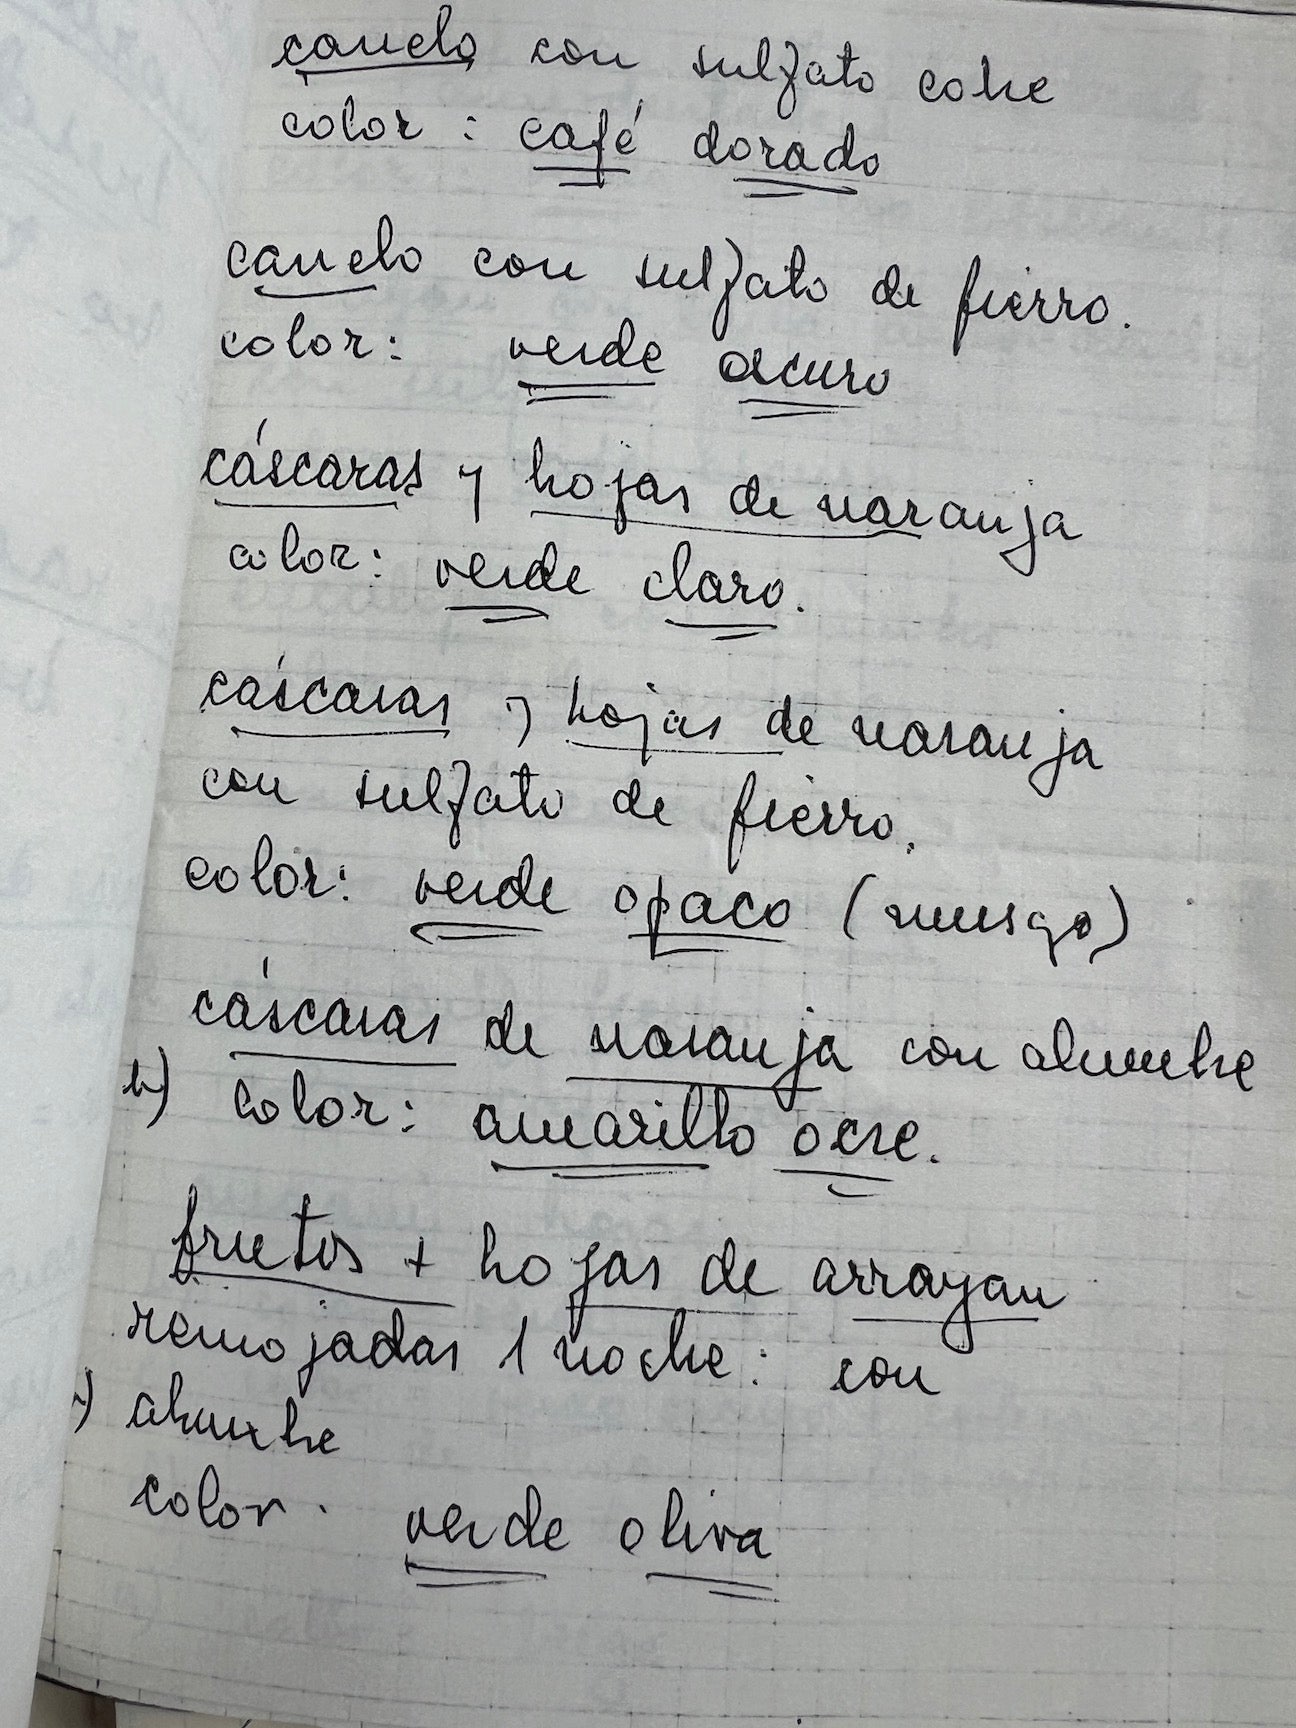 canelo con sulfato cobre
color : café dorado
canelo con sulfato de fierro.
color: verde oscuro
cáscaras y hojas de naranja
color: verde claro.
cáscaras y hojas de naranja
con sulfato de fierro.
color: verde opaco (musgo)
cáscaras de naranja con alumbre
b) color: amarillo ocre.
frutos + hojas de arrayan
remojadas 1 noche: con
alumbre
color: verde oliva